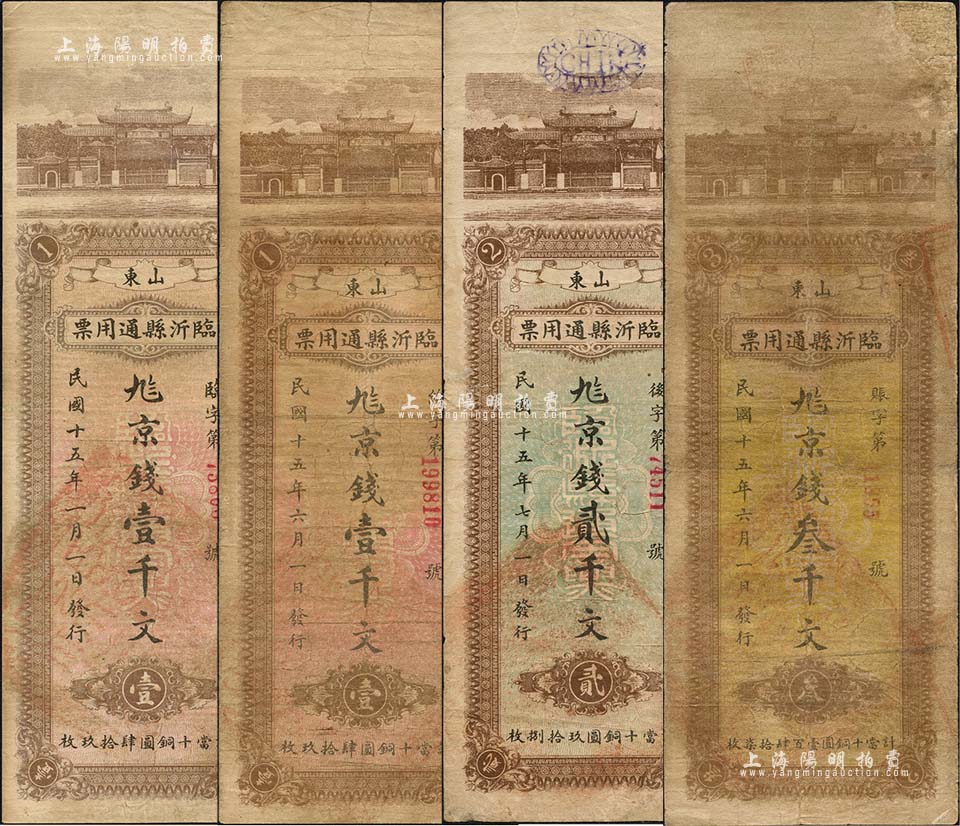 上海陽明拍賣
www.yangmingauction.com
1
東山
票用通縣沂臨
臨字第
尭京錢壹千文
民國十五年一月一日發行
壹
枚玖拾肆圓銅十當
1
東山
票用通縣沂臨
字第
199810
號
京錢壹千文
民國十五年六月一日發行
壹
枚玖拾肆圓銅十當
CHIN
2
東山
票用通縣沂臨
後字第
74511
號
京錢貳千文
民國十五年七月一日發行
貳
枚捌拾玖圓銅十當
3
東山
票用通縣沂臨
賬字第
號
京錢叁千文
民國十五年六月一日發行
叁
枚柒拾肆百壹圓銅十當計
上海陽明拍賣
www.yangmingauction.com
上海陽明拍賣
www.yangmingauction.com